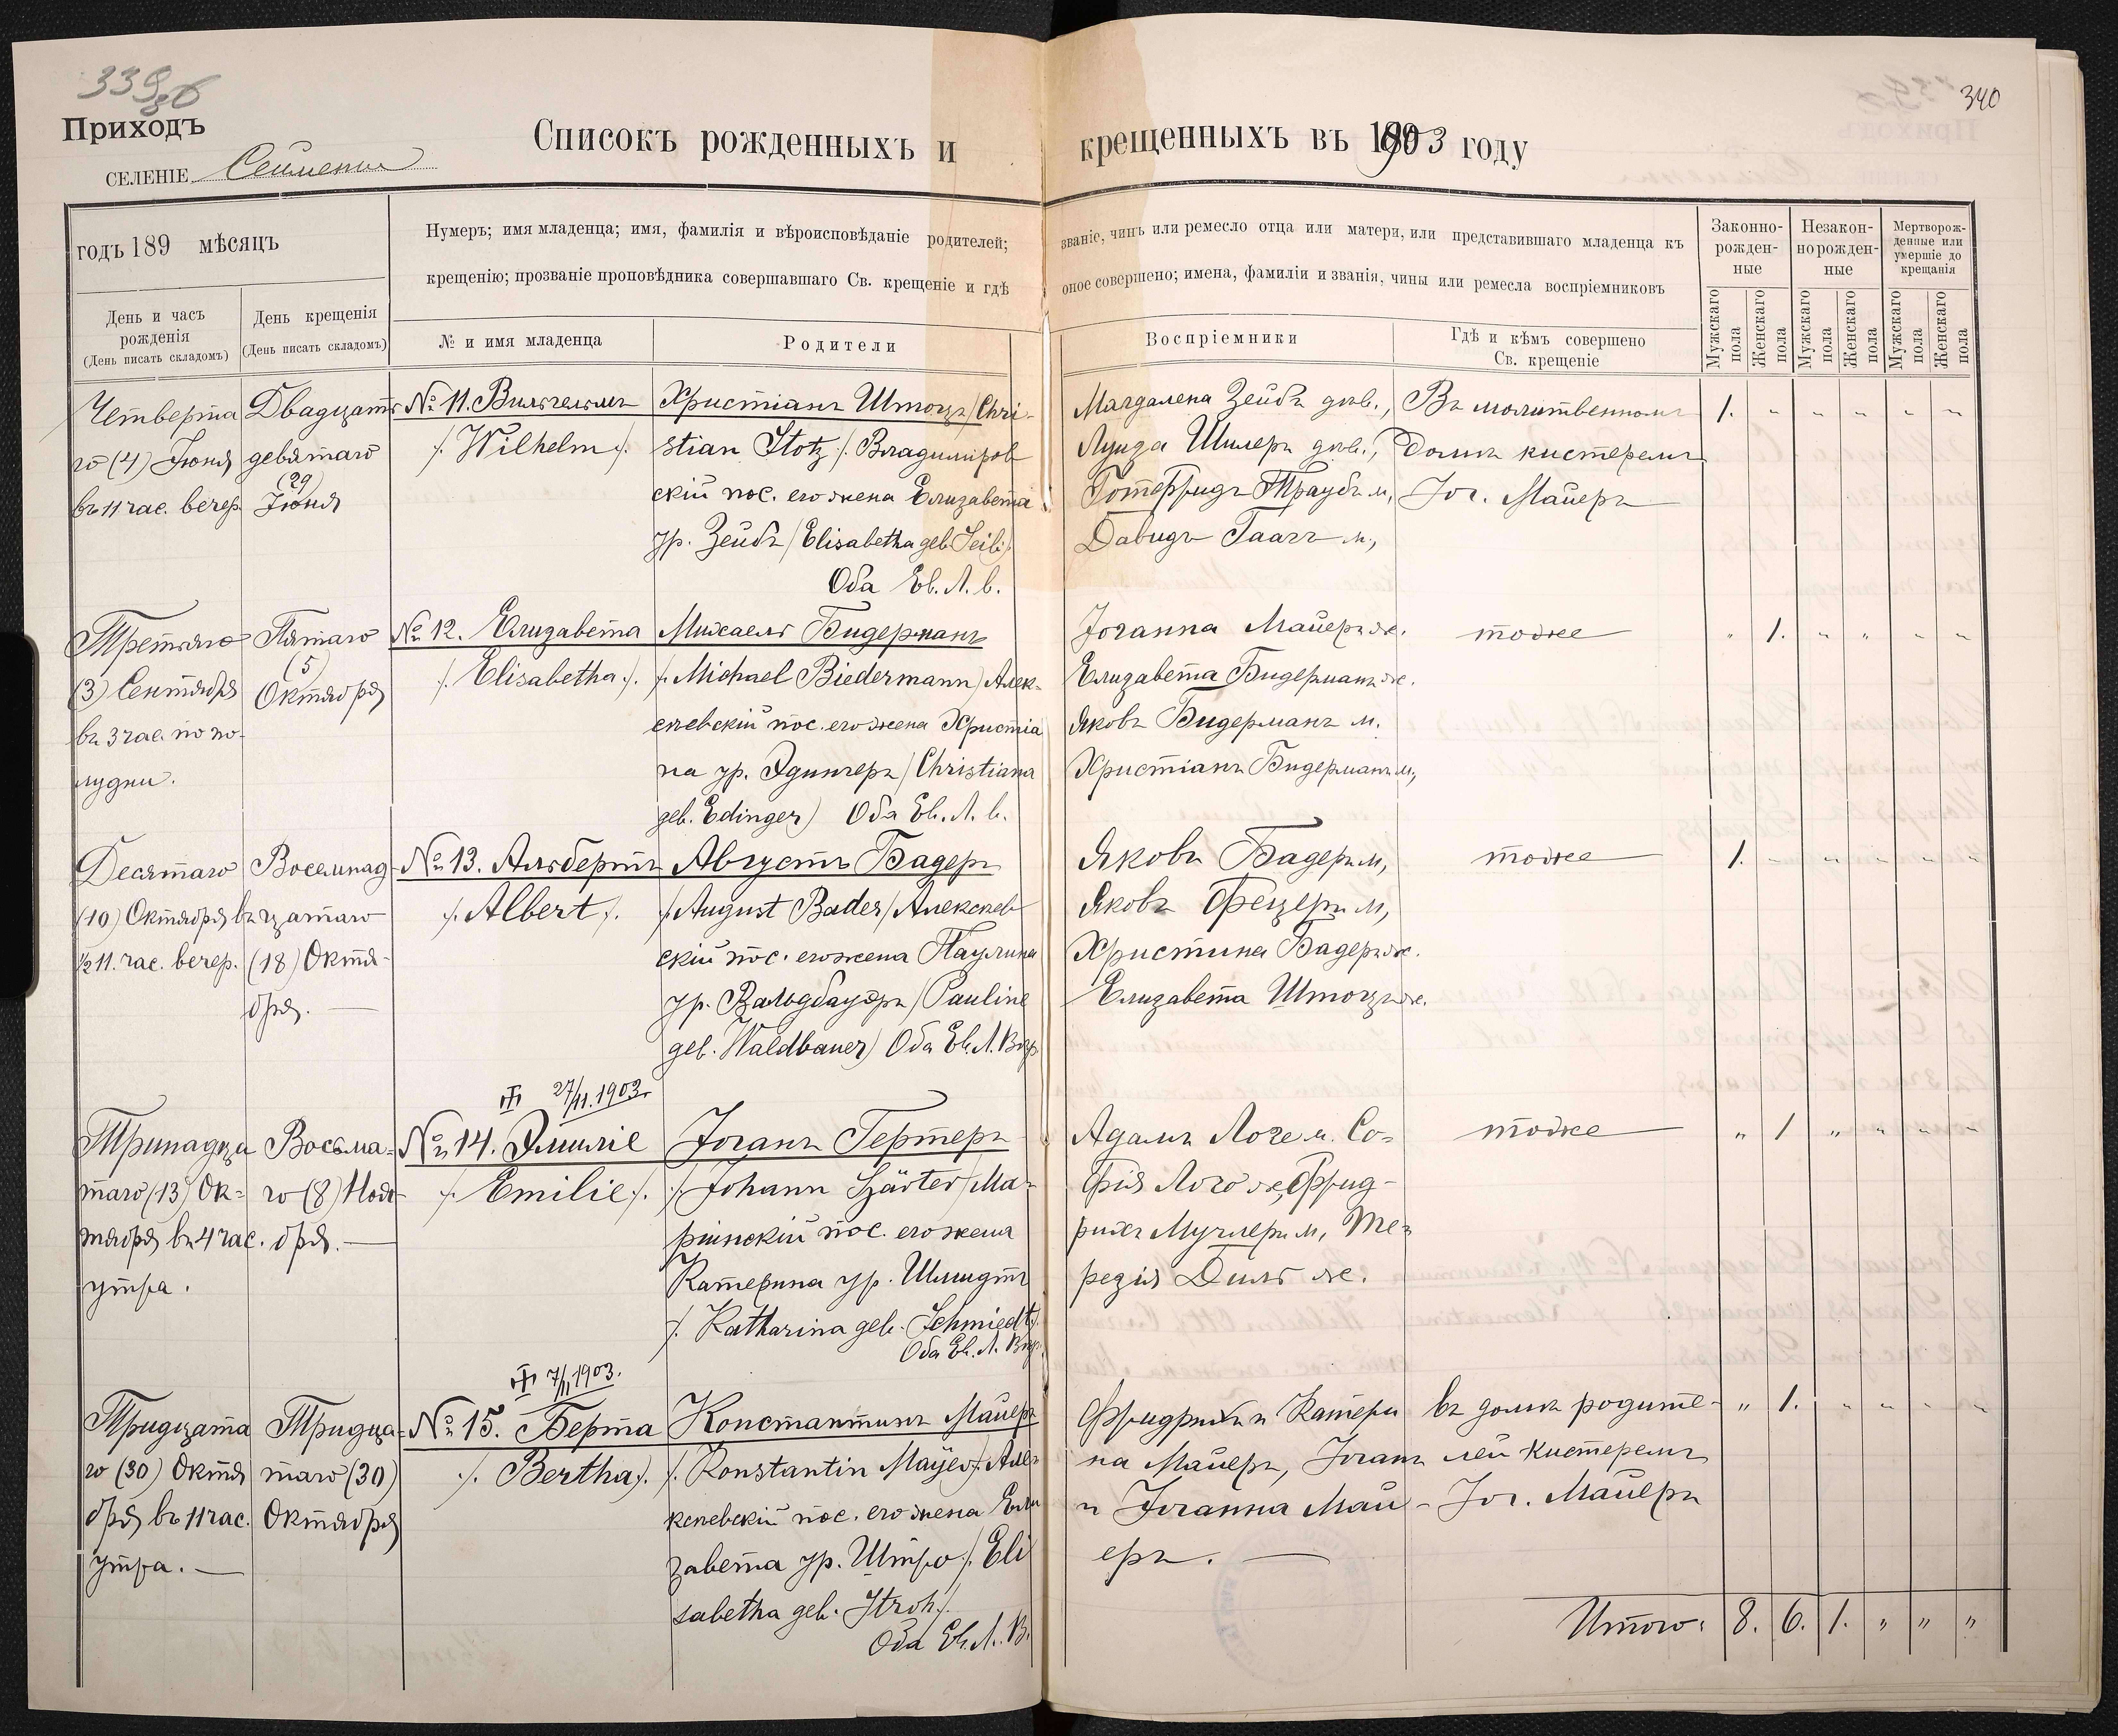 339об
340
Приходъ
СЕЛЕНІЕ Сеймены
Списокъ рожденныхъ и крещенныхъ въ 1903 году
годъ 189 мѣсяцъ
Нумеръ; имя младенца; имя, фамилія и вѣроисповѣданіе родителей; званіе, чинъ или ремесло отца или матери, или представившаго младенца къ
крещенію; прозваніе проповѣдника совершавшаго Св. крещеніе и гдѣ оное совершено; имена, фамиліи и званія, чины или ремесла воспріемниковъ
Законно-
рожден-
ные
Незакон-
норожден-
ные
Мертворож-
денные или
умершіе до
крещанія
День и часъ
рожденія
(День писать складомъ)
День крещенія
(День писать складомъ)
№ и имя младенца
Родители
Воспріемники
Гдѣ и кѣмъ совершено
Св. крещеніе
Мужскаго пола
Женскаго пола
Мужскаго пола
Женскаго пола
Мужскаго пола
Женскаго пола
Четверта
го (4) Іюня
въ 11 час. вечер.
Двадцать
девятаго
(29)
Іюня
№ 11. Вильгельмъ
/. Wilhelm /.
Христіанъ Штоцъ /Chri-
stian Stotz /. Владиміров
скій пос. его жена Елизавета
ур. Зейбъ /Elisabetha geb. Seib/.
Оба Ев. Л. в.
Магдалена Зейбъ дѣв.,
Луиза Шилеръ дѣв.,
Готфридъ Траубъ м,
Давидъ Гаагъ м,
Въ молитвенномъ
домѣ кистеремъ
Іог. Майеръ
1. „ „ „ „ „
Третьяго
(3) Сентября
въ 3 час. по по-
лудни.
Пятаго
(5)
Октября
№ 12. Елизавета
/. Elisabetha /.
Михаелъ Бидерманъ
/. Michael Biedermann) Алек-
сеевскій пос. его жена Христіа
на ур. Эдингеръ /Christiana
geb. Edinger) Оба Ев. Л. в.
Іоганна Майеръ ж.
Елизавета Бидерманъ ж.
Яковъ Бидерманъ м.
Христіанъ Бидерманъ м,
тоже
„ 1. „ „ „ „
Десятаго
(10) Октября въ
½ 11. час. вечер.
Восемнад
цатаго
(18) Октя-
бря.
№ 13. Альбертъ
/. Albert /.
Августъ Бадеръ
/August Bader/ Алексеев
скій пос. его жена Паулина
ур. Вальдбауэръ /Pauline
geb. Waldbauer) Оба Ев. Л. Вѣр
Яковъ Бадеръ м,
Яковъ Фецеръ м,
Христина Бадеръ ж.
Елизавета Штоцъ ж.
тоже
1. „ „ „ „ „
27/11. 1903.
Тринадца
таго (13) Ок-
тября въ 4 час.
утра.
Восьма-
го (8) Нояб-
бря.
№ 14. Эмиліе
/. Emilie /.
Іоганъ Гертеръ
/. Johann Härter/ Ма-
ріинскій пос. его жена
Катерина ур. Шмидтъ
/. Katharina geb. Schmiedt/.
Оба Ев. Л. Вѣр.
Адамъ Логе м. Со-
фія Логе ж, Фрид-
рихъ Мучлеръ м, Те-
резія Диль ж.
тоже
„ 1 „ „ „ „
7/11 1903.
Тридцата
го (30) Октя
бря въ 11 час.
утра.
Тридца-
таго (30)
Октября
№ 15. Берта
/. Bertha /.
Константинъ Майеръ
/. Konstantin Mayer/. Але-
ксеевскій пос. его жена Ели
завета ур. Штро /. Eli
sabetha geb. Stroh/.
Оба Ев. Л. В.
Фридрихъ и Катери
на Майеръ, Іоганъ
и Іоганна Май-
еръ.
въ домѣ родите-
лей кистеремъ
Іог. Майеръ
„ 1. „ „ „ „
Итого: 8. 6. 1. „ „ „